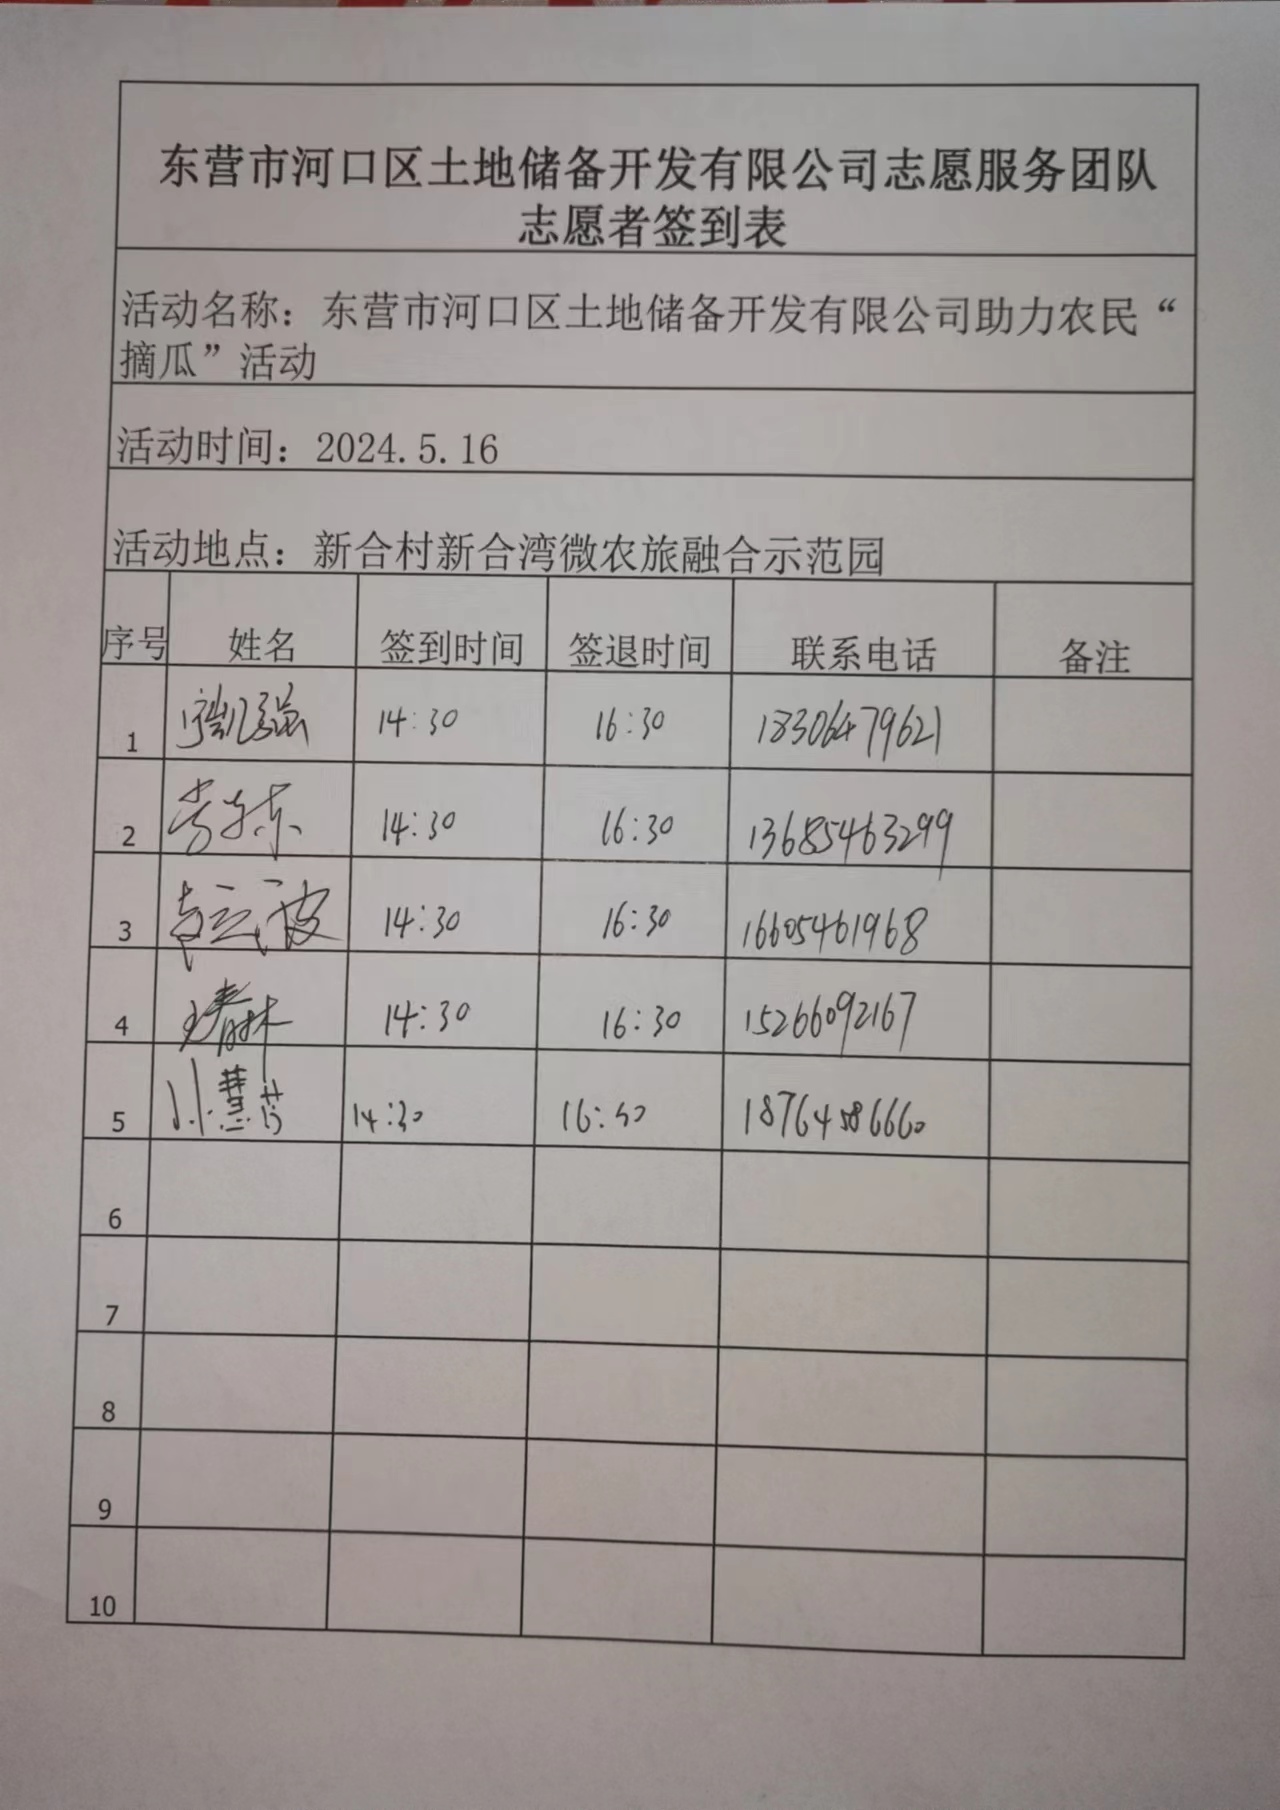 东营市河口区土地储备开发有限公司志愿服务团队
志愿者签到表
活动名称：东营市河口区土地储备开发有限公司助力农民“
摘瓜”活动
活动时间：2024.5.16
活动地点：新合村新合湾微农旅融合示范园
序号 姓名 签到时间 签退时间 联系电话 备注
1 14:30 16:30 18306479621
2 14:30 16:30 13685463299
3 14:30 16:30 16605461968
4 14:30 16:30 15266092167
5 14:30 18764586660
6
7
8
9
10